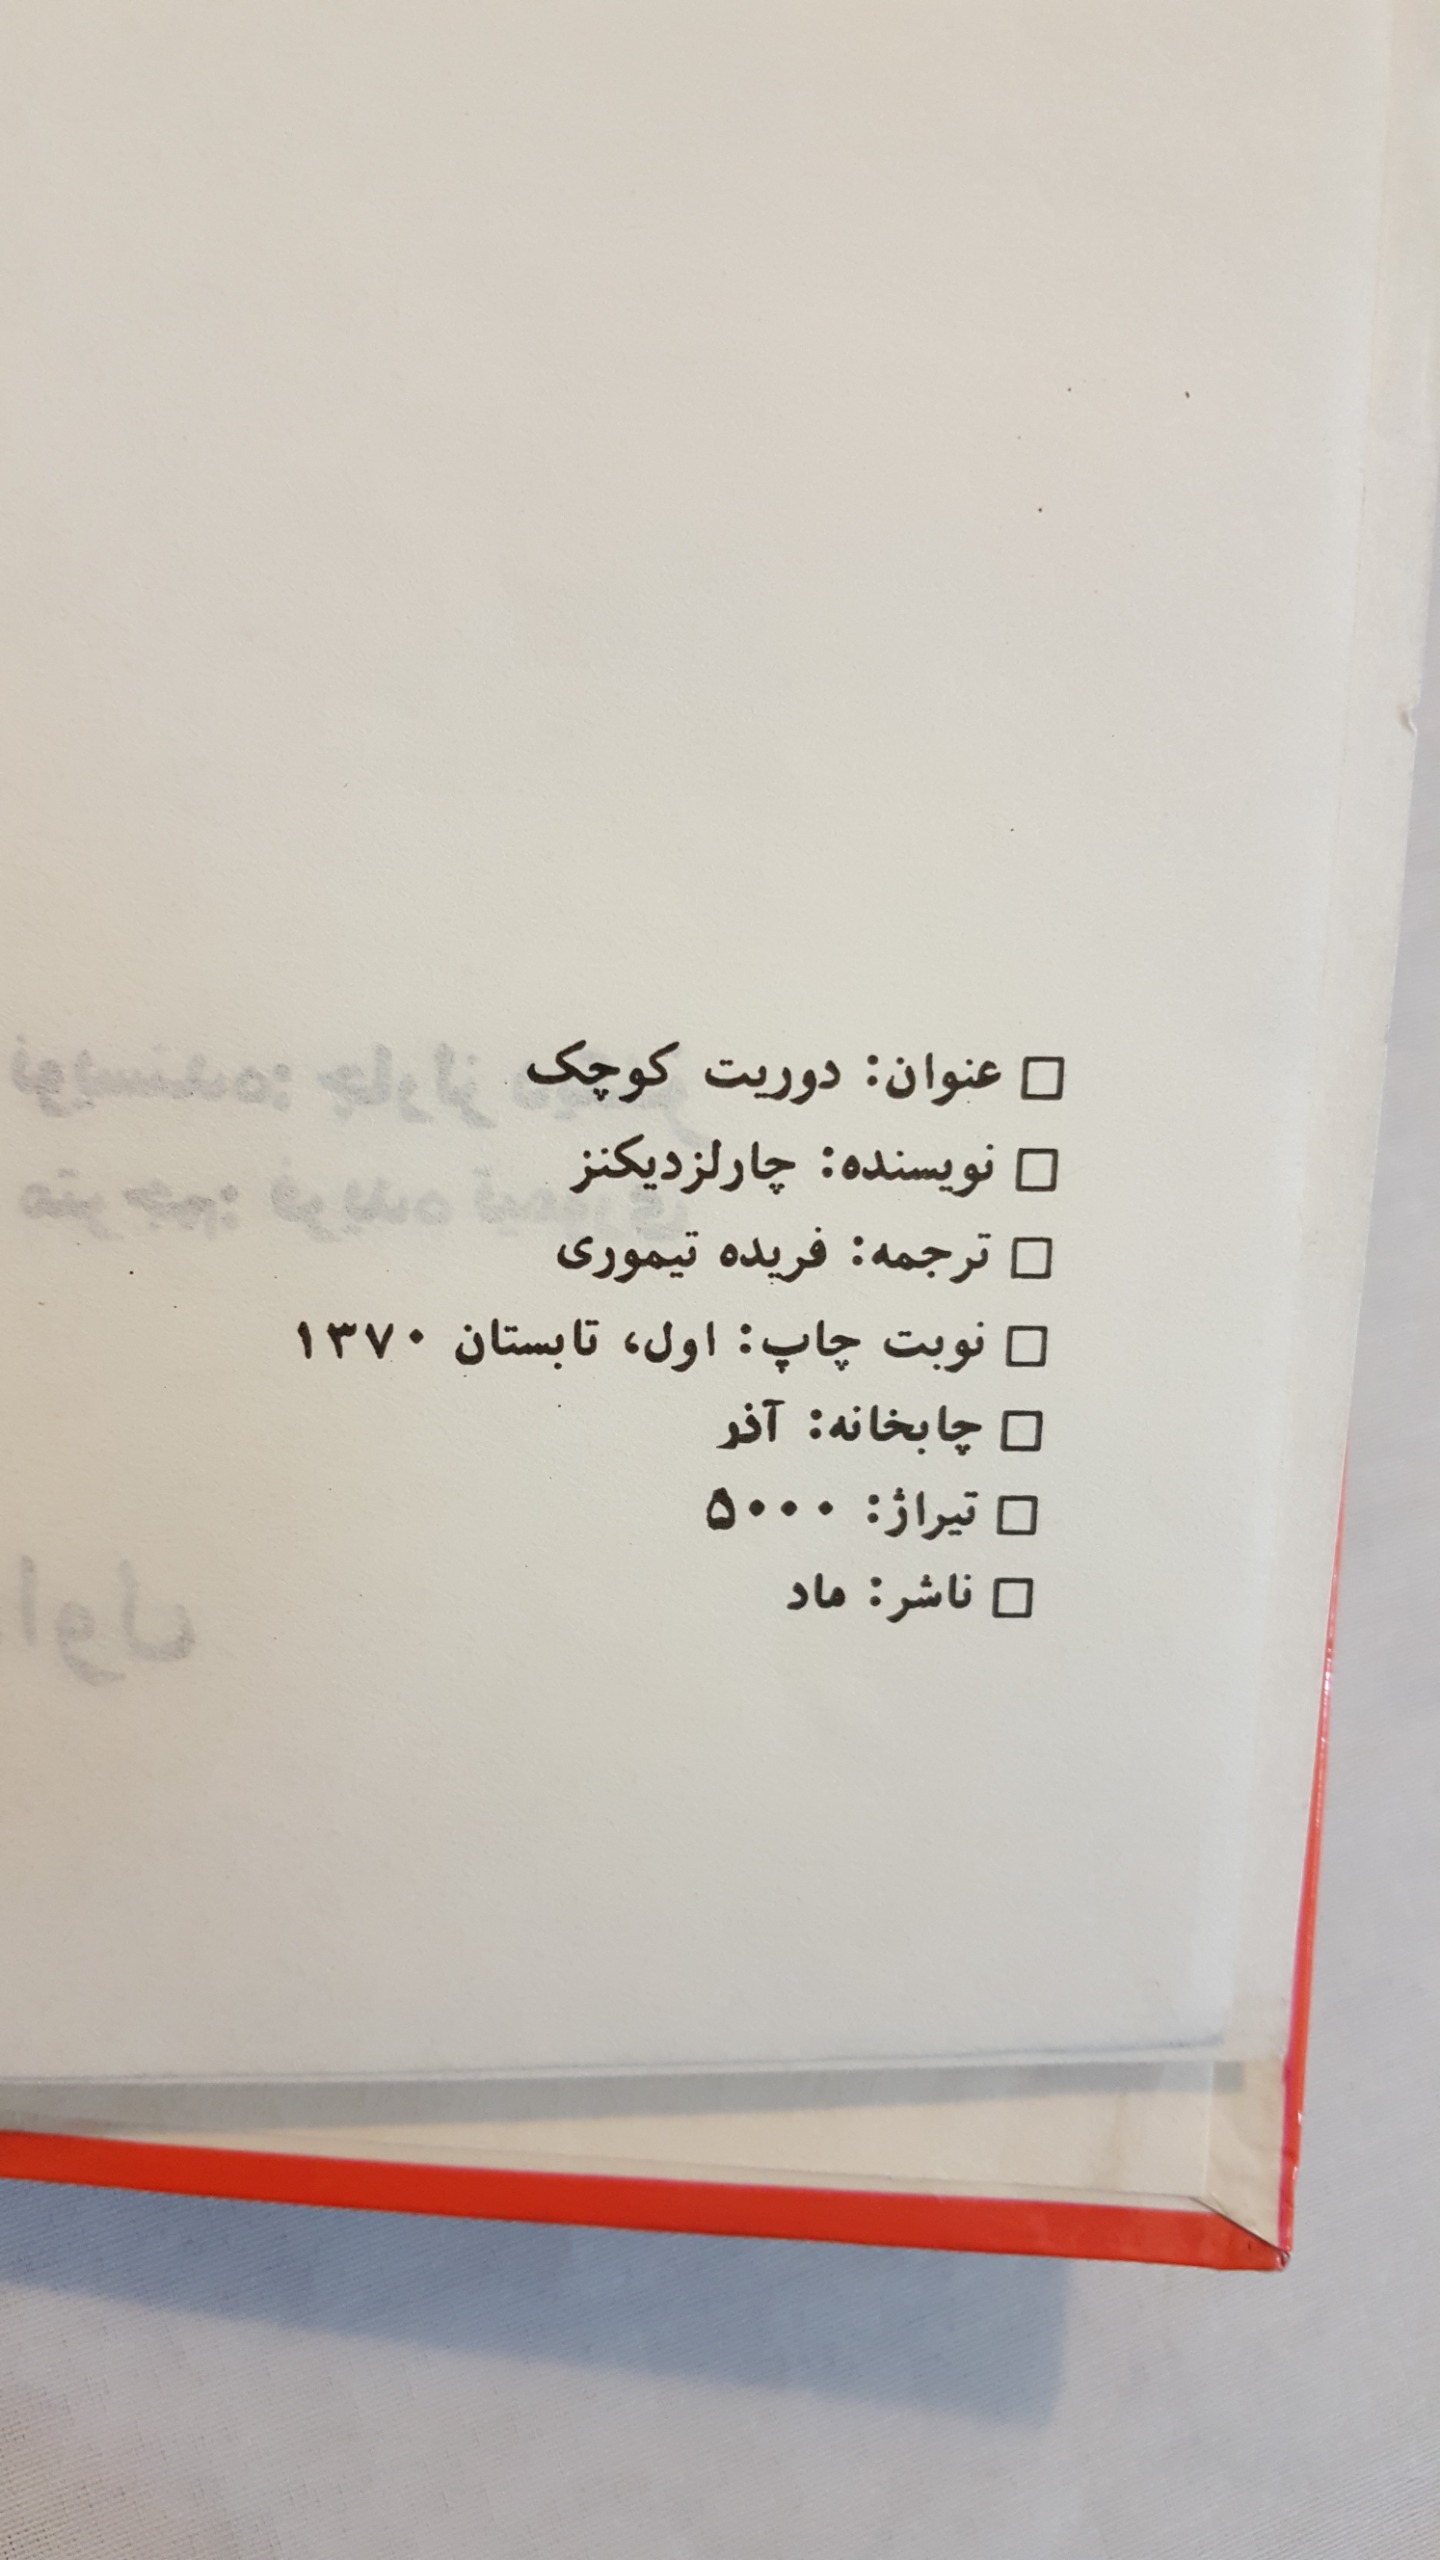 □ عنوان: دوریت کوچک
□ نویسنده: چارلزدیکنز
□ ترجمه: فریده تیموری
□ نوبت چاپ: اول، تابستان ۱۳۷۰
□ چابخانه: آذر
□ تیراژ: ۵۰۰۰
□ ناشر: ماد